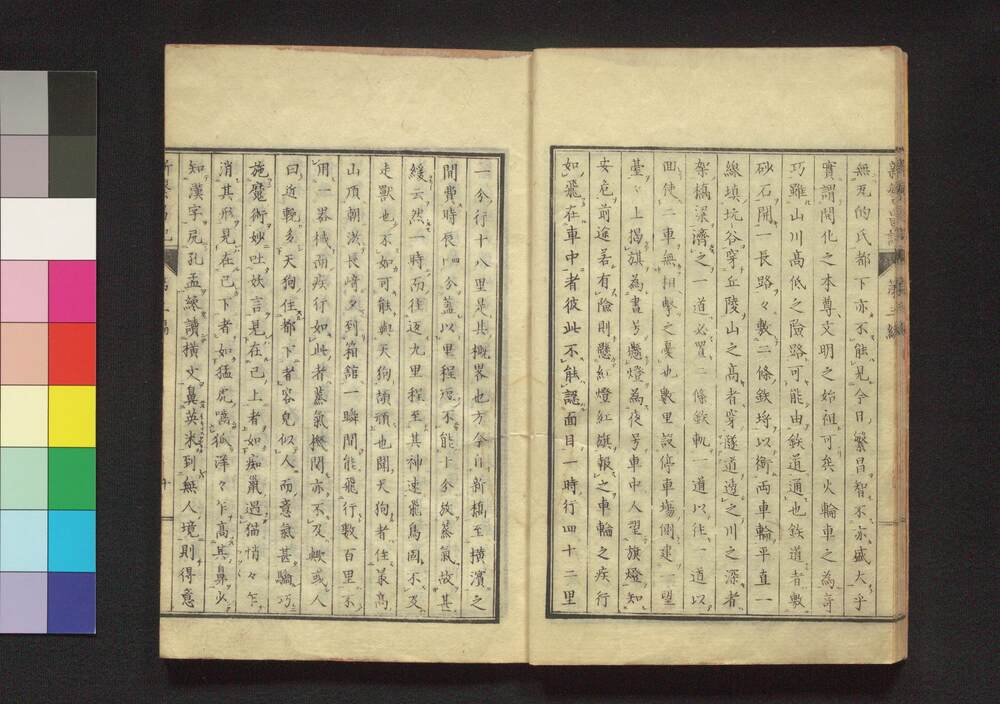 無瓦的氏都下亦不能見今日繁昌智不亦盛大乎
實謂開化之本尊文明之始祖可矣火輪車之為奇
巧雖山川高低之險路可能由鉄道通也鉄道者敷
砂石開一長路々敷二條鉄埒以衛両車輪平直一
線填坑谷穿丘陵山之高者穿隧道造之川之深者
架橋梁濟之一道必置二條鉄軌一道以徃一道以
回使二車無相擊之憂也數里設停車塲側建一望
臺々上揭旗為晝号懸燈為夜号車中人望旗燈知
安危前途若有險則懸紅燈紅旗報之車輪之疾行
如飛在車中者彼此不能認面目一時行四十二里
一分行十八里是其概畧也方今自新橋至横濱之
間費時辰四分蓋以里程短不能十分放蒸氣故其
緩云然一時而往返九里程至其神速飛鳥固不及
走獸也不如可能與天狗頡頏也聞天狗者住最高
山頂朝洪長崎夕到箱舘一瞬間能飛行数百里不
用一器械而疾行如此者蒸氣機関亦不及歟或人
曰近輓多天狗住都下者容皃似人而意氣甚驕巧
施魔術妙吐妖言見在己上者如痴鼠遇猫悄々乍
消其形見在己下者如猛虎嚙狐洋々乍高其鼻少
知漢字凥孔孟纔讀横文鼻英米到無人境則得意